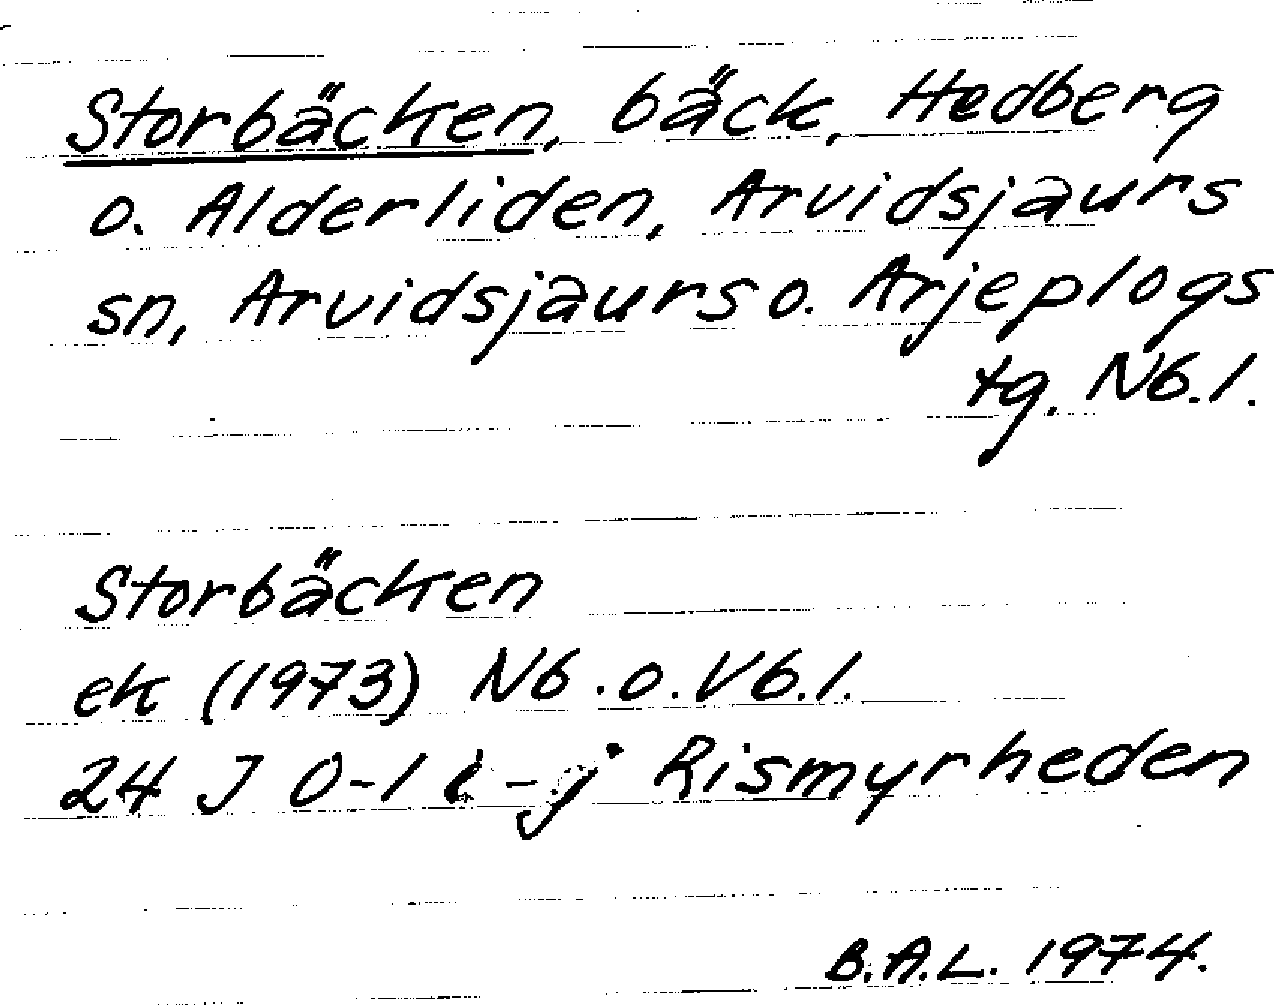 Storbäcken, bäck, Hedberg
o. Alderliden, Arvidsjaurs
sn, Arvidsjaurs o. Arjeplogs
tg. Nb.l.
Storbäcken
ek (1973) Nb. o. Vb.l.
24 J 0-1 i-j Rismyrheden
B.A.L. 1974.